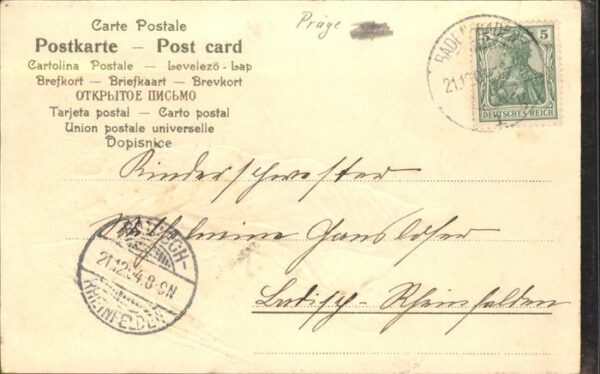 Präge
Carte Postale
Postkarte — Post card
Cartolina Postale — Levelező-Lap
Brefkort — Briefkaart — Brevkort
ОТКРЫТОЕ ПИСЬМО
Tarjeta postal — Carto postal
Union postale universelle
Dopisnice
BADEN-BADEN
21.12.04
5 5
DEUTSCHES REICH
Kinderschwester
Wilhelmine
Badisch-Rheinfelden
21.12.04.8-9N
RHEINFELDEN